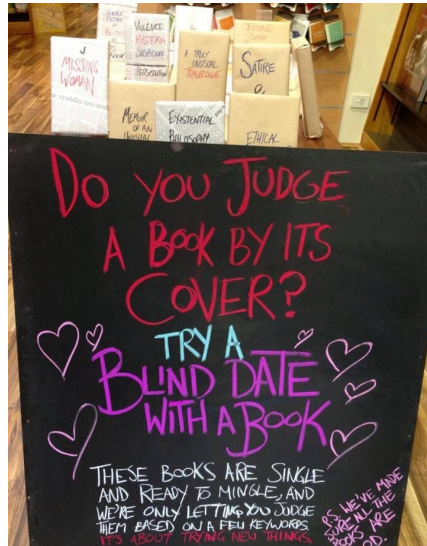 SCIENCE
FICTION
VIOLENCE
HYSTERIA
SEDUCTION
PERSECUTION
A TRULY
UNUSUAL
TRAVELOGUE
TEENAGE
SATIRE
A
MISSING
WOMAN
MEMOIR
OF AN
UNUSUAL
EXISTENTIAL
PHILOSOPHY
ETHICAL
DO YOU JUDGE
A BOOK BY ITS
COVER?
TRY A
BLIND DATE
WITH A BOOK
THESE BOOKS ARE SINGLE
AND READY TO MINGLE, AND
WE'RE ONLY LETTING YOU JUDGE
THEM BASED ON A FEW KEYWORDS
IT'S ABOUT TRYING NEW THINGS
P.S. WE'VE MADE
SURE ALL THE
BOOKS ARE